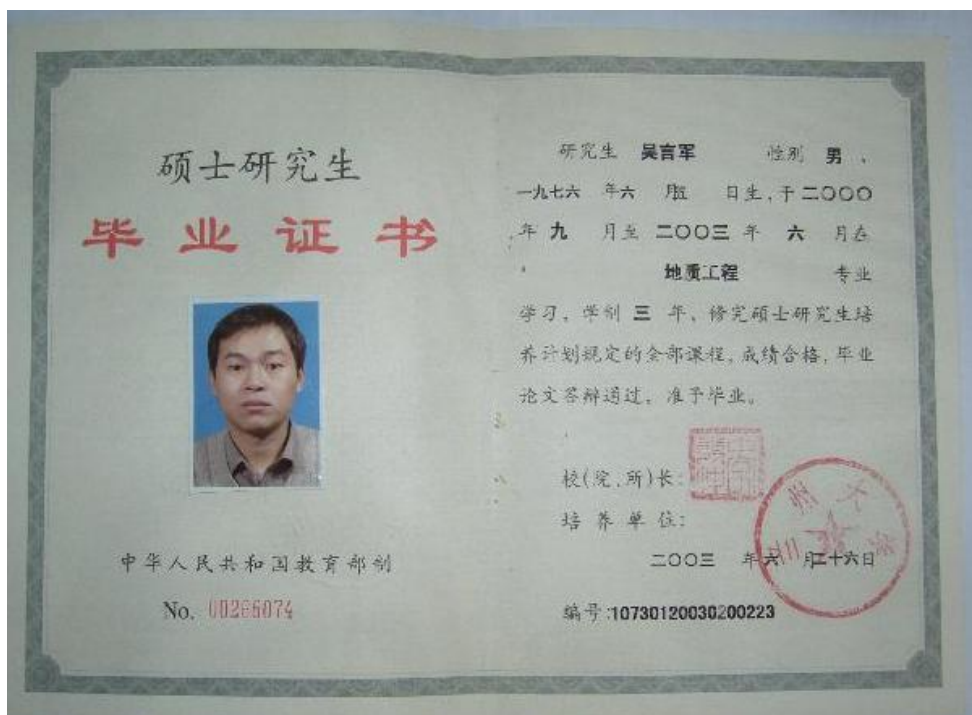 硕士研究生
毕业证书
中华人民共和国教育部制
No. 00266074
研究生 吴言军 性别 男、
一九七六 年六 月五 日生,于二〇〇〇
年 九 月至 二〇〇三 年 六 月在
地质工程 专业
学习,学制 三 年,修完硕士研究生培
养计划规定的全部课程,成绩合格,毕业
论文答辩通过,准予毕业。
校(院、所)长:
培养单位:
二〇〇三 年六 月二十六日
编号:10730120030200223
州大学